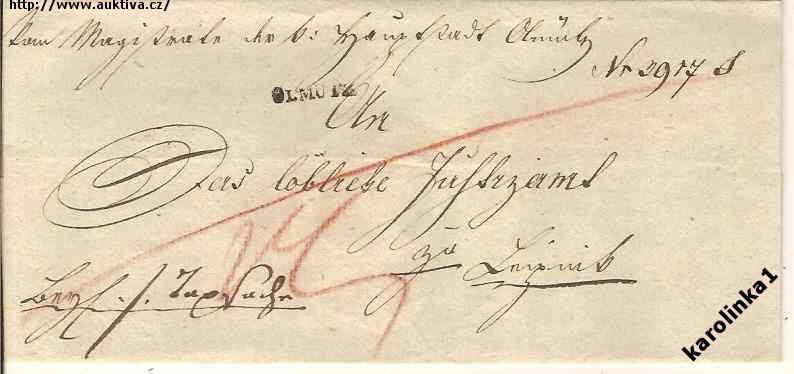 http://www.auktiva.cz/
Vom Magistrate der k: Hauptstadt Olmütz
Nr 3917 J
OLMÜTZ
An
Das löbliche Justizamt
zu Leipnik
Taxsache
karolinka1